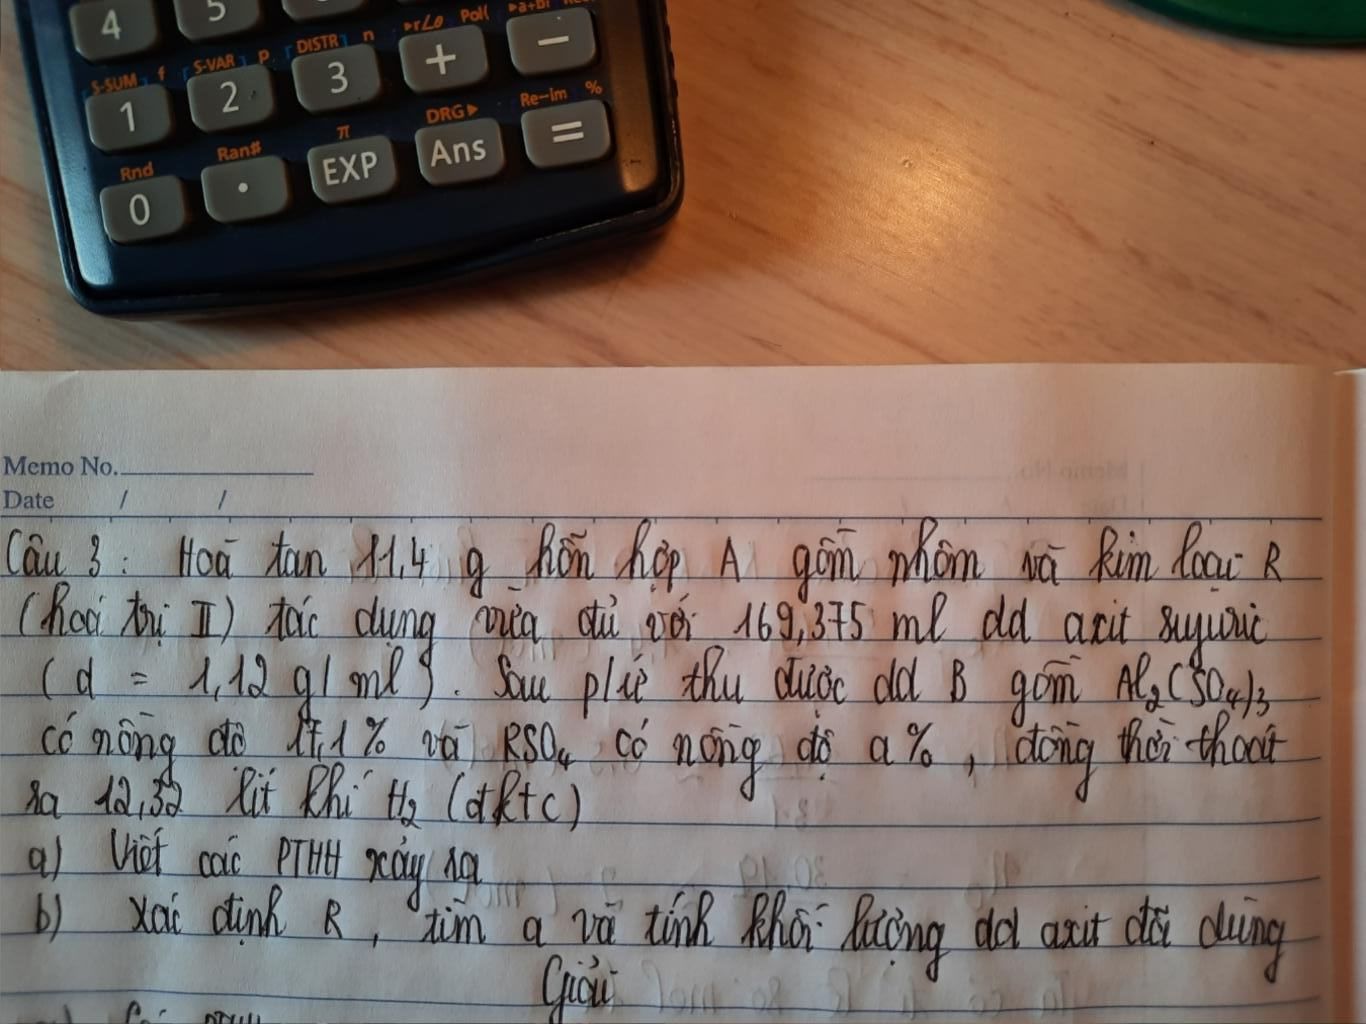 4 5
S-SUM f S-VAR p DISTR n ▸r∠θ Pol( ▸a+bi
1 2 3 + −
Rnd Ran# π DRG▸ Re-Im %
0 . EXP Ans =
Memo No.
Date / /
Câu 3 : Hoà tan 11,4 g hỗn hợp A gồm nhôm và kim loại R
(hoá trị II) tác dụng vừa đủ với 169,375 ml dd axit suyuric
( d = 1,12 g/ml ). Sau p/ứ thu được dd B gồm Al2(SO4)3
có nồng độ 17,1 % và RSO4 có nồng độ a % , đồng thời thoát
ra 12,32 lít khí H2 (đktc)
a) Viết các PTHH xảy ra
b) Xác định R , tìm a và tính khối lượng dd axit đã dùng
Giải